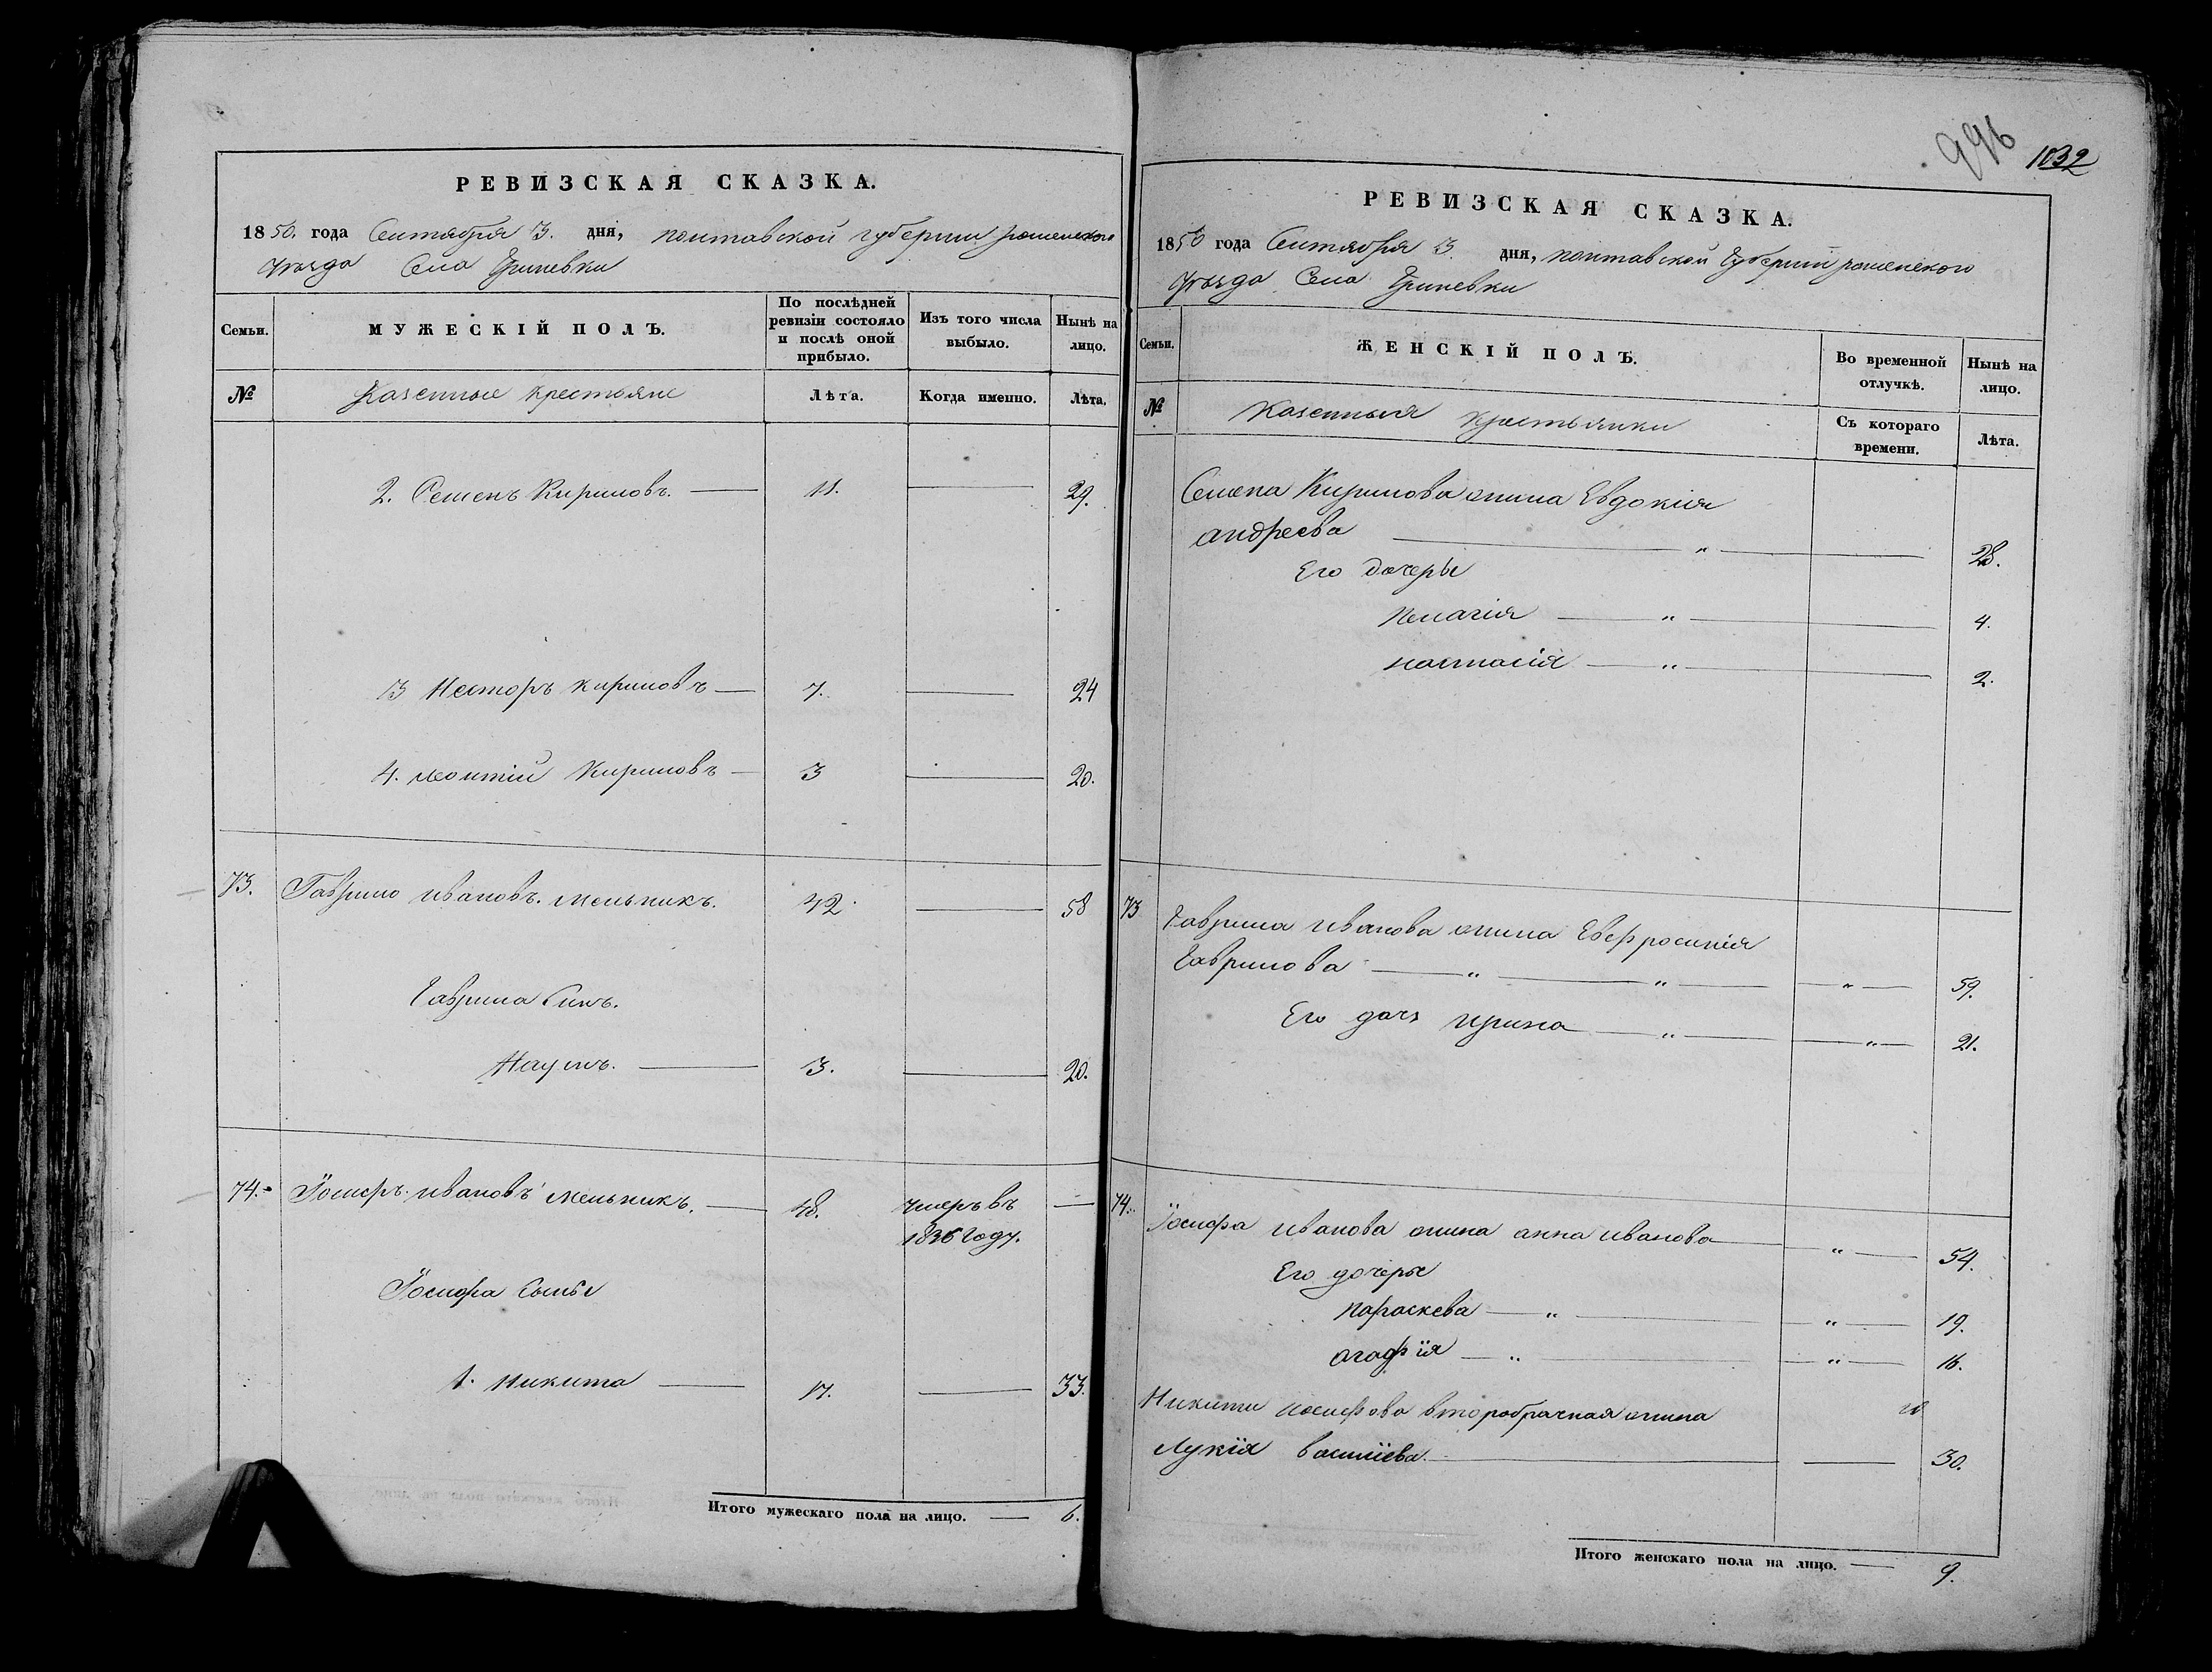 РЕВИЗСКАЯ СКАЗКА.
1850. года Сентября 3. дня, полтавской губернии роменского
уѣзда Села Гриневки
Семьи. МУЖЕСКІЙ ПОЛЪ. По послѣдней ревизіи состояло и послѣ оной прибыло. Изъ того числа выбыло. Нынѣ на лицо.
№ Казенные крестьяне Лѣта. Когда именно. Лѣта.
2. Семенъ Кириловъ. — 11. — 29.
3 Несторъ кириловъ — 7. — 24
4. леонтій Кириловъ — 3 — 20.
73. Гаврило ивановъ. мельникъ. 42. — 58
Гаврила Синъ.
Наумъ. — 3. — 20.
74. Іосифъ ивановъ мельникъ. — 48. умеръ въ —
1836 году.
Іосифа Сыны
1. Никита — 17. — 33.
Итого мужескаго пола на лицо. — 6.
996 1032
РЕВИЗСКАЯ СКАЗКА.
1850 года Сентября 3. дня, полтавской Губерніи роменского
уѣзда Села Гриневки
Семьи. ЖЕНСКІЙ ПОЛЪ. Во временной отлучкѣ. Нынѣ на лицо.
№ Казенныя крестьянки Съ котораго времени. Лѣта.
Семена Кирилова жина Евдокія
андреева — " — 28.
Его дочеры
пелагія — " — 4.
настасія — " — 2.
73 Гаврила иванова жина Евфросинія
Гаврилова — " — " — " — 59.
Его дочь ирина — " — " — 21.
74. Іосифа иванова жина анна иванова — " — 54.
Его дочеры
параскева — " — " — 19.
агафія — " — " — 16.
Никити иосифова второбрачная жина
Лукія василіева. — 30.
Итого женскаго пола на лицо. — 9.